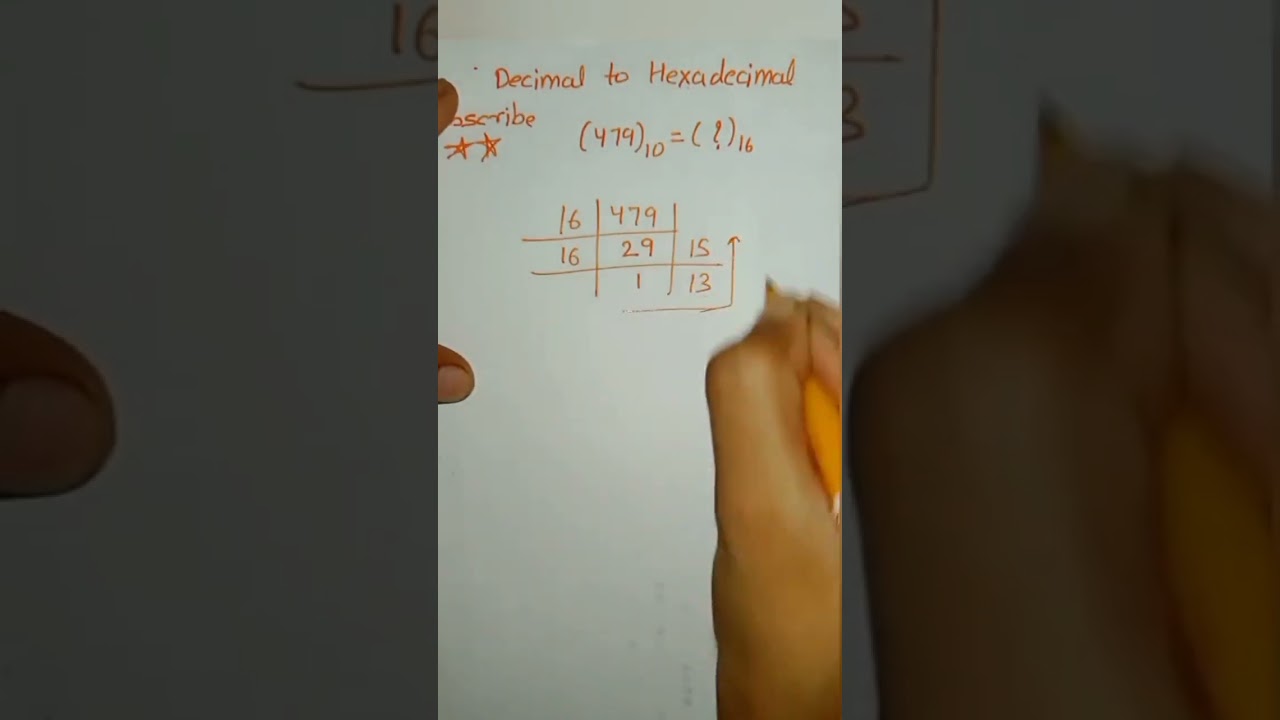 Decimal to Hexadecimal
bscribe
(479)10 = ( ? )16
16 479
16 29 15
1 13